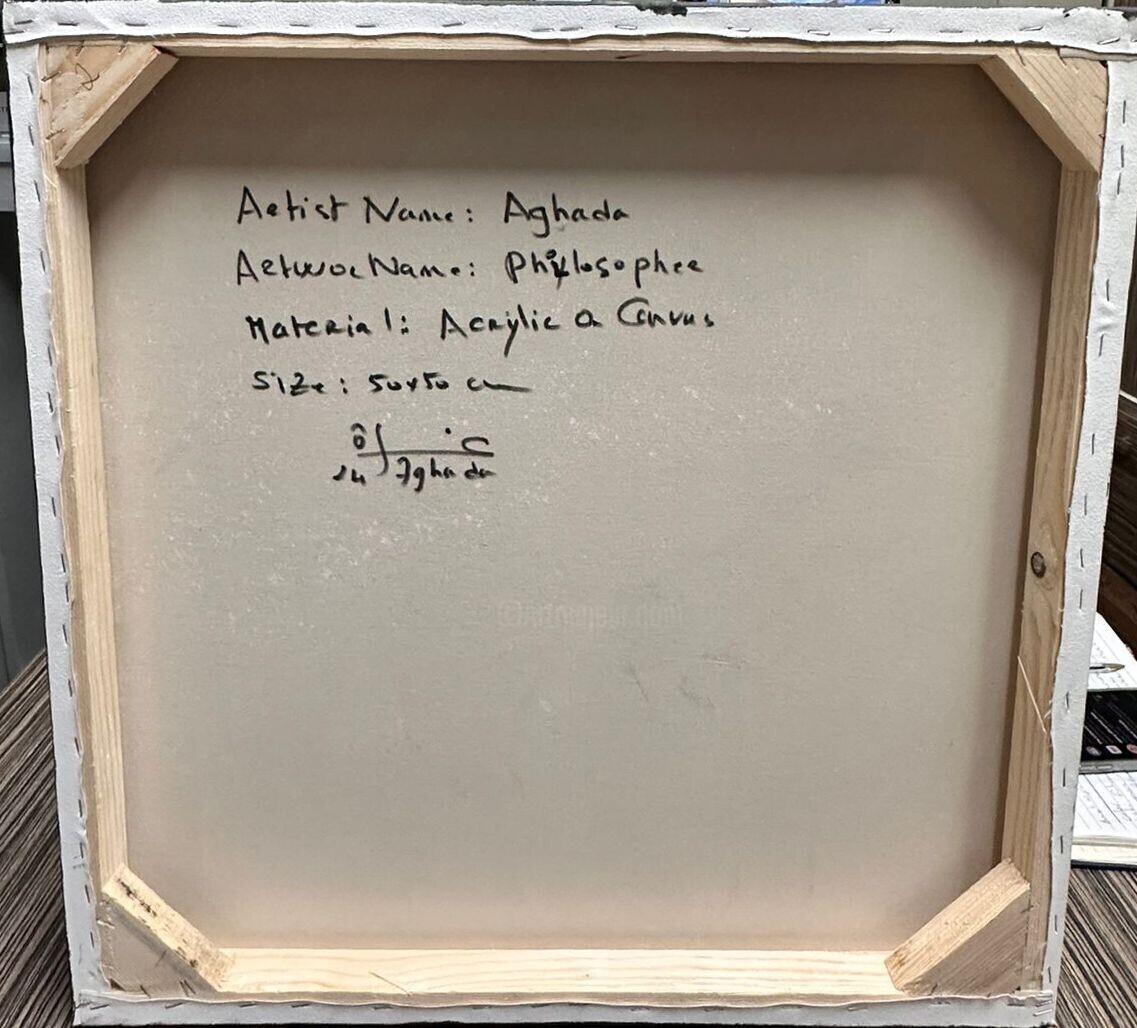 Artist Name: Aghada
Artwor Name: Philosopher
Material: Acrylic on Canvas
Size: 50x50 cm
24 Aghada
©Artmajeur.com